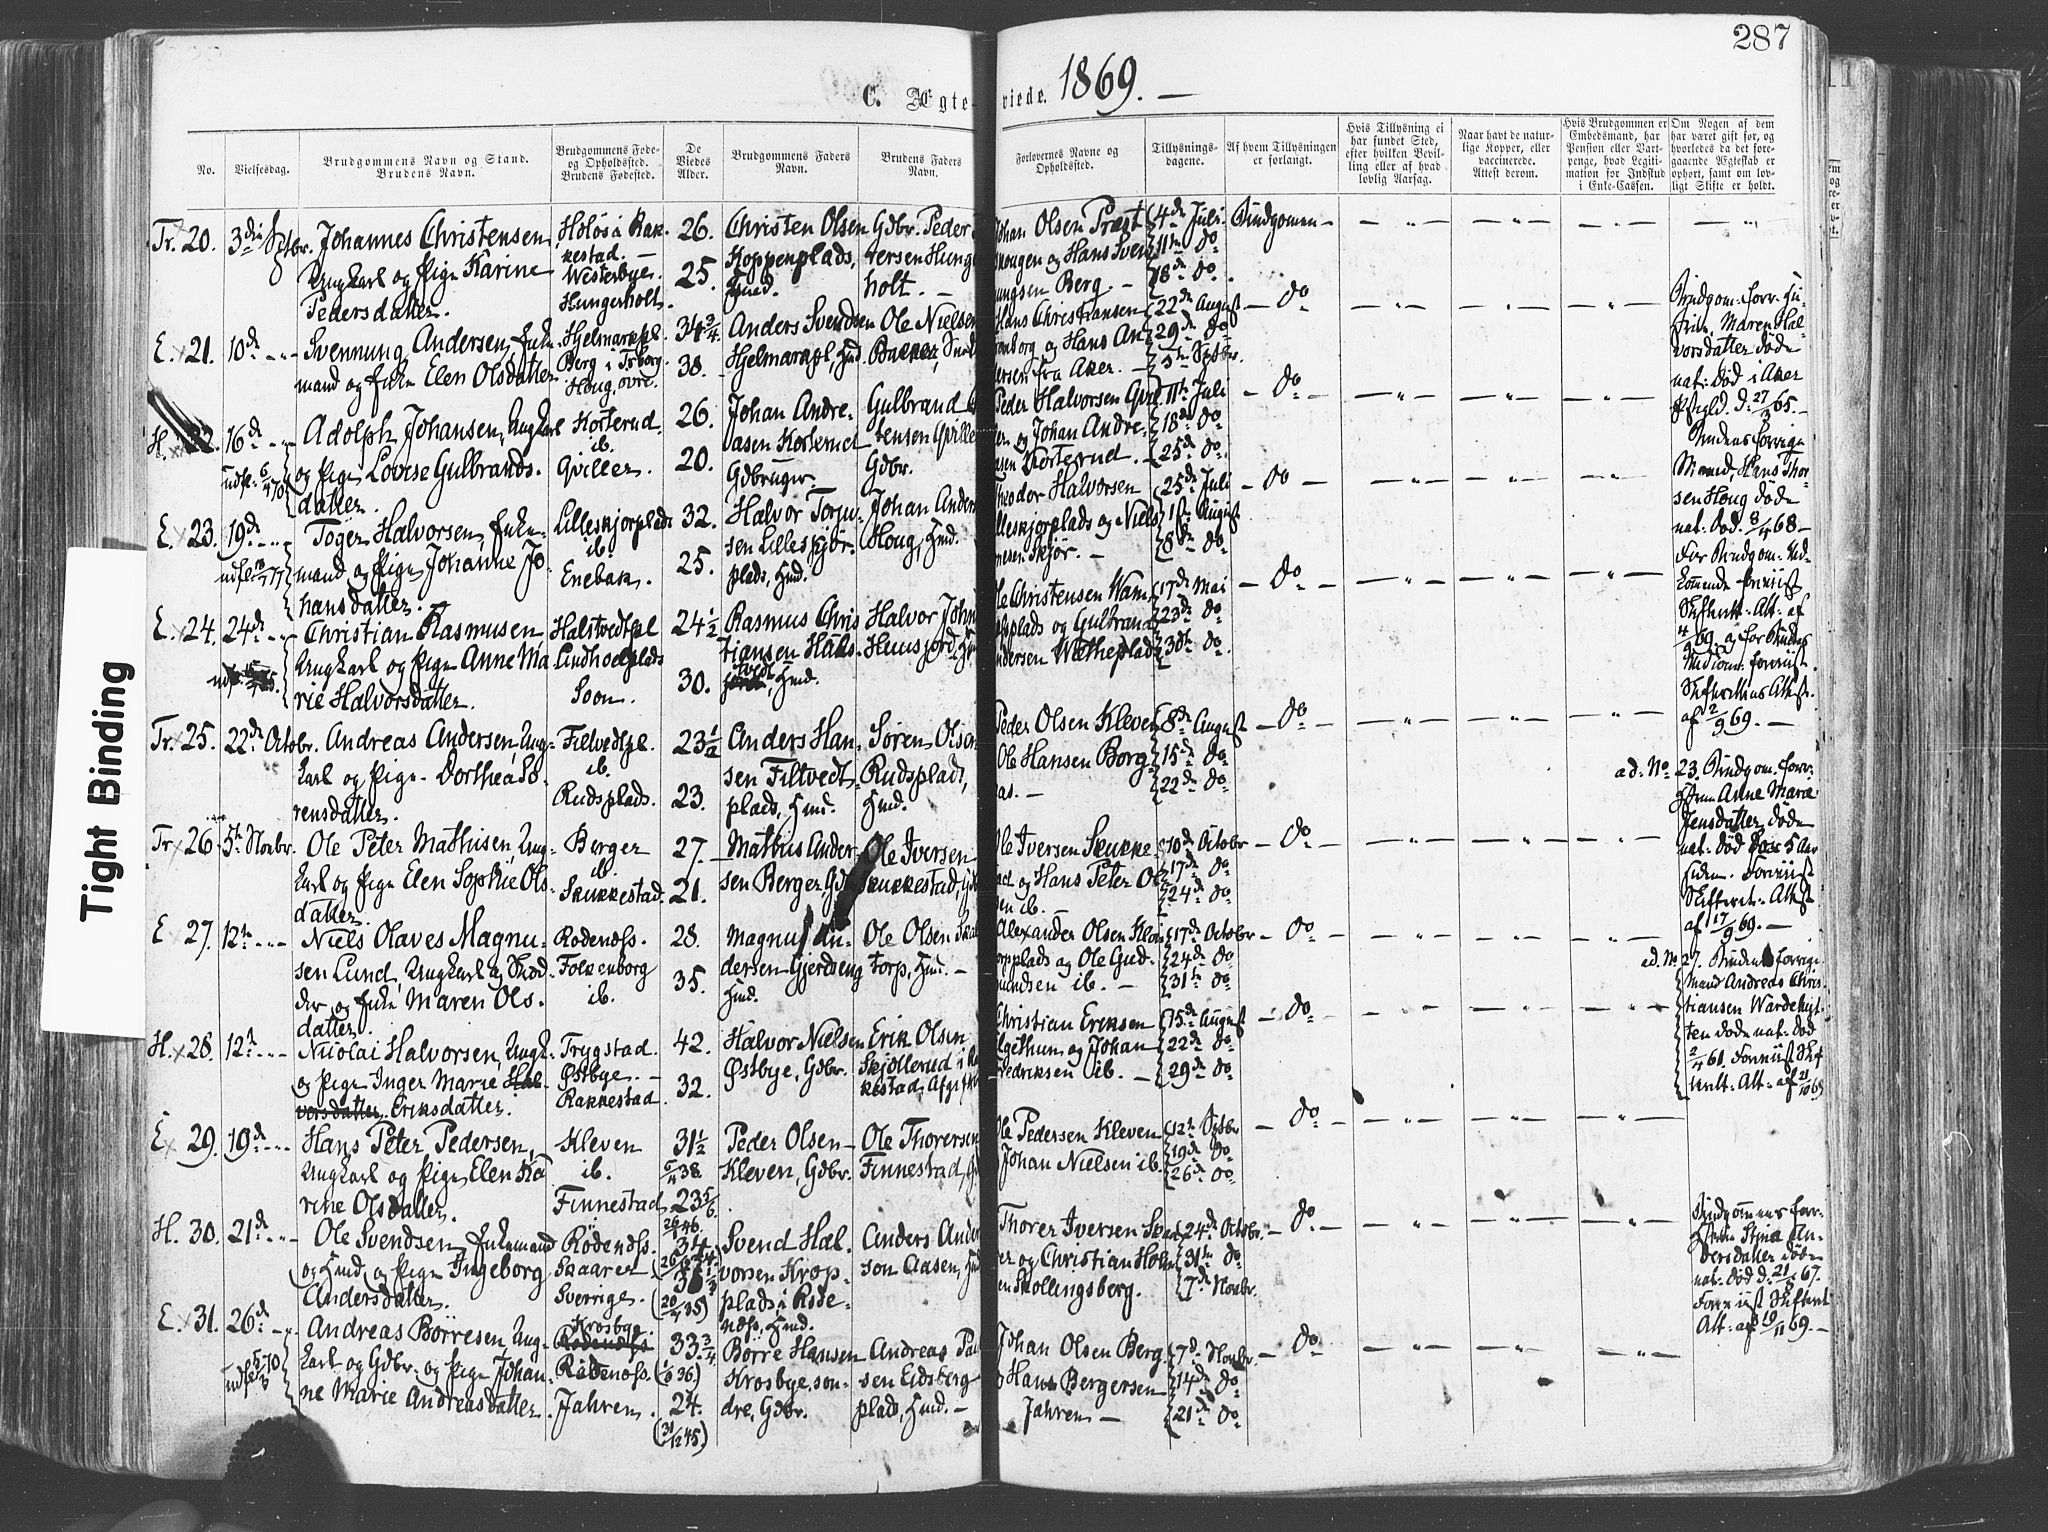 287
C. Ægteviede. 1869. —
No.
Vielsesdag.
Brudgommens Navn og Stand.
Brudens Navn.
Brudgommens Føde-
og Opholdssted.
Brudens Fødested.
De
Viedes
Alder.
Brudgommens Faders
Navn.
Brudens Faders
Navn.
Forlovernes Navne og
Opholdssted.
Tillysnings-
dagene.
Af hvem Tillysningen
er forlangt.
Hvis Tillysning ei
har fundet Sted,
efter hvilken Bevil-
ling eller af hvad
lovlig Aarsag.
Naar havt de natur-
lige Kopper, eller
vaccinerede.
Attest derom.
Hvis Brudgommen er
Embedsmand, har
Pension eller Vart-
penge, hvad Legiti-
mation for Indskud
i Enke-Cassen.
Om Nogen af dem
har været gift før, og
hvorledes da det fore-
gaaende Ægteskab er
ophørt, samt om lov-
ligt Skifte er holdt.
Tr. 20. 3die Septbr. Johannes Christensen
Ungkarl og Pige Karine
Pedersdatter.
Holøs i Rak-
kestad. —
Westerbye.
Hungerholt.
26.
25.
Christen Olsen
Koppenplads,
Hmd.
Gdbr. Peder
tersen Hunge
holt. —
Johan Olsen Præst
skougen og Hans Sven
ungsen Berg. —
4de Juli
11te do
18de do
Brudgommen —
E. 21. 10de
Svennung Andersen, Enke-
mand og Enke Elen Olsdatter
Hjelmarkpl.
Berg i Trborg.
Houg, øvre.
34 3/4
38.
Anders Svendsen
Hjelmarkpl, Hmd.
Ole Nielsen
Bakke, Smed
Hans Christiansen
enborg og Hans An
dersen fra Aker. —
22de August
29de do
5te Septbr.
do
Brudgom. forr. Hu-
strue, Maren Hal-
vorsdatter døde
nat. Død i Aker
Pfgld. d. 27/3 65. —
Brudens forrige
Mand, Hans Thor-
sen Houg døde
nat. Død. 8/4 68 —
For Brudgom. Ved-
kommende foreviist
Skifterett. Att. af
af 2/9 69. —
H. 22. 16de
udfl. 6/4 70
Adolph Johansen, Ungkarl
og Pige Lovise Gulbrands-
datter.
Korterud.
ib.
Qviller.
26.
20.
Johan Andre-
asen Korterud
Gdbruger.
Gulbrand
tensen Qville
Gdbr.
Peder Halvorsen Qvil
ler og Johan Andre-
asen Korterud. —
11te Juli
18de do
25de do
do
E. 23. 19de
Töger Halvorsen, Enke-
mand og Pige Johanne Jo-
hansdatter.
Lilleskjorplads
ib.
Enebak.
32.
25.
Halvor Torju-
sen Lilleskjör-
plads, Hmd.
Johan Anders
Houg, Hmd.
Theodor Halvorsen
illeskjorplads og Niels
mesen Skjør. —
25de Juli
1ste August
8de do
do
E. 24. 24de
Christian Rasmusen
Ungkarl og Pige Anne Ma
rie Halvorsdatter.
Halstvedtpl
Lundhoelplads
Soon.
24 1/2
30.
Rasmus Chris
tiansen Hals-
tvedt, Hmd.
Halvor John
Huusjord, Hm
Ole Christensen Wam
plads og Gulbrand
Andersen Wetheplads
17de Mai
23de do
30te do
do
Tr. 25. 22de Octobr.
Andreas Andersen, Ung-
karl og Pige Dorthea Sö-
rensdatter.
Filtvedtpl.
ib.
Rudsplads.
23 1/2
23.
Anders Han-
sen Filtvedt-
plads, Hmd.
Sören Olsen
Rudsplads,
Hmd.
Peder Olsen Kleven
Ole Hansen Borg-
as. —
8de August
15de do
22de do
do
ad. No 23. Brudgom. forr.
Hstrue Anne Marie
Jensdatter døde
nat. Død for 5 Aar
siden. Foreviist
Skifteret. Attst
af 17/9 69. —
Tr. 26. 5te Novbr.
Ole Peter Mathisen, Ung-
karl og Pige Elen Sophie Ols-
datter.
Berger
ib.
Skukkestad.
27. —
21.
Mathis Ander-
sen Berger, Gdb
Ole Iversen
Skukkestad, Gdb
Ole Iversen Skukke-
stad og Hans Peter Ol
sen ib. —
10de Octobr
17de do
24de do
do
E 27. 12te
Niels Olaves Magnu-
sen Lund, Ungkarl og Sned-
der og Enke Maren Ols-
datter.
Rödenæss.
Folkenborg
ib.
28.
35.
Magnus An-
dersen Gjerdseng
Hmd.
Ole Olsen Ska
torp, Hmd. —
Alexander Olsen Klo
orpplads og Ole Gud-
mundsen ib. —
17de Octobr
24de do
31te do
do
ad. No 27. Brudens forrige
Mand Andreas Chris-
tiansen Wardehyt-
ten døde nat. Død
2/4 61. Foreviist Skif
terett. Att. af 21/10 69
H. 28. 12te
Nicolai Halvorsen, Ungk.
og Pige Inger Marie Hal-
vorsdatter Eriksdatter.
Trygstad.
Østbye. —
Rakkestad.
42.
32.
Halvor Nielsen
Østbye, Gdbr.
Erik Olsen
Skjøllerud i Ra
kestad,
Christian Eriksen
Algethun og Johan
Fredriksen ib. —
15de August
22de do
29de do
do
E 29. 19de
Hans Peter Pedersen,
Ungkarl og Pige Elen Ka
rine Olsdatter.
Kleven
ib.
Finnestad
31 1/2
6/4 38
23 5/6
Peder Olsen
Kleven, Gdbr.
Ole Thorersen
Finnestad, G
Ole Pedersen Kleven
Johan Nielsen ib.
12te Septbr
19de do
26de do
do
H. 30. 21de
Ole Svendsen, Enkemand
og Hmd, og Pige Ingeborg
Andersdatter.
Rödenæss.
Skaarer
Sverrige.
34
Svend Hal-
vorsen Krop-
plads i Röde-
næss, Hmd.
Anders Ander
son Aasen, Hm
Thorer Iversen Ska
rer og Christian Holm
en Skollingsberg.
24de Octobr.
31te do
7de Novbr.
do
Brudgommens forr.
Hstrue Stina An-
dersdatter døde
nat. Død d. 21/8 67.
Foreviist Skifteret
Att. af 19/11 69. —
E. 31. 26de
udfl. 5/3 70
Andreas Börresen, Ung-
karl og Gdbr. og Pige Johan-
ne Marie Andreasdatter.
Krosbye.
Rödenæss
Rödenæss.
Jahren.
33 3/4
24.
(31/12 45)
Börre Hansen
Krosbye, søn-
dre, Gdbr.
Andreas Pal
sen Eidsberg
plads, Hmd. —
Johan Olsen Berg
Hans Bergersen
Jahren —
7de Novbr.
14de do
21de do
do
Tight Binding